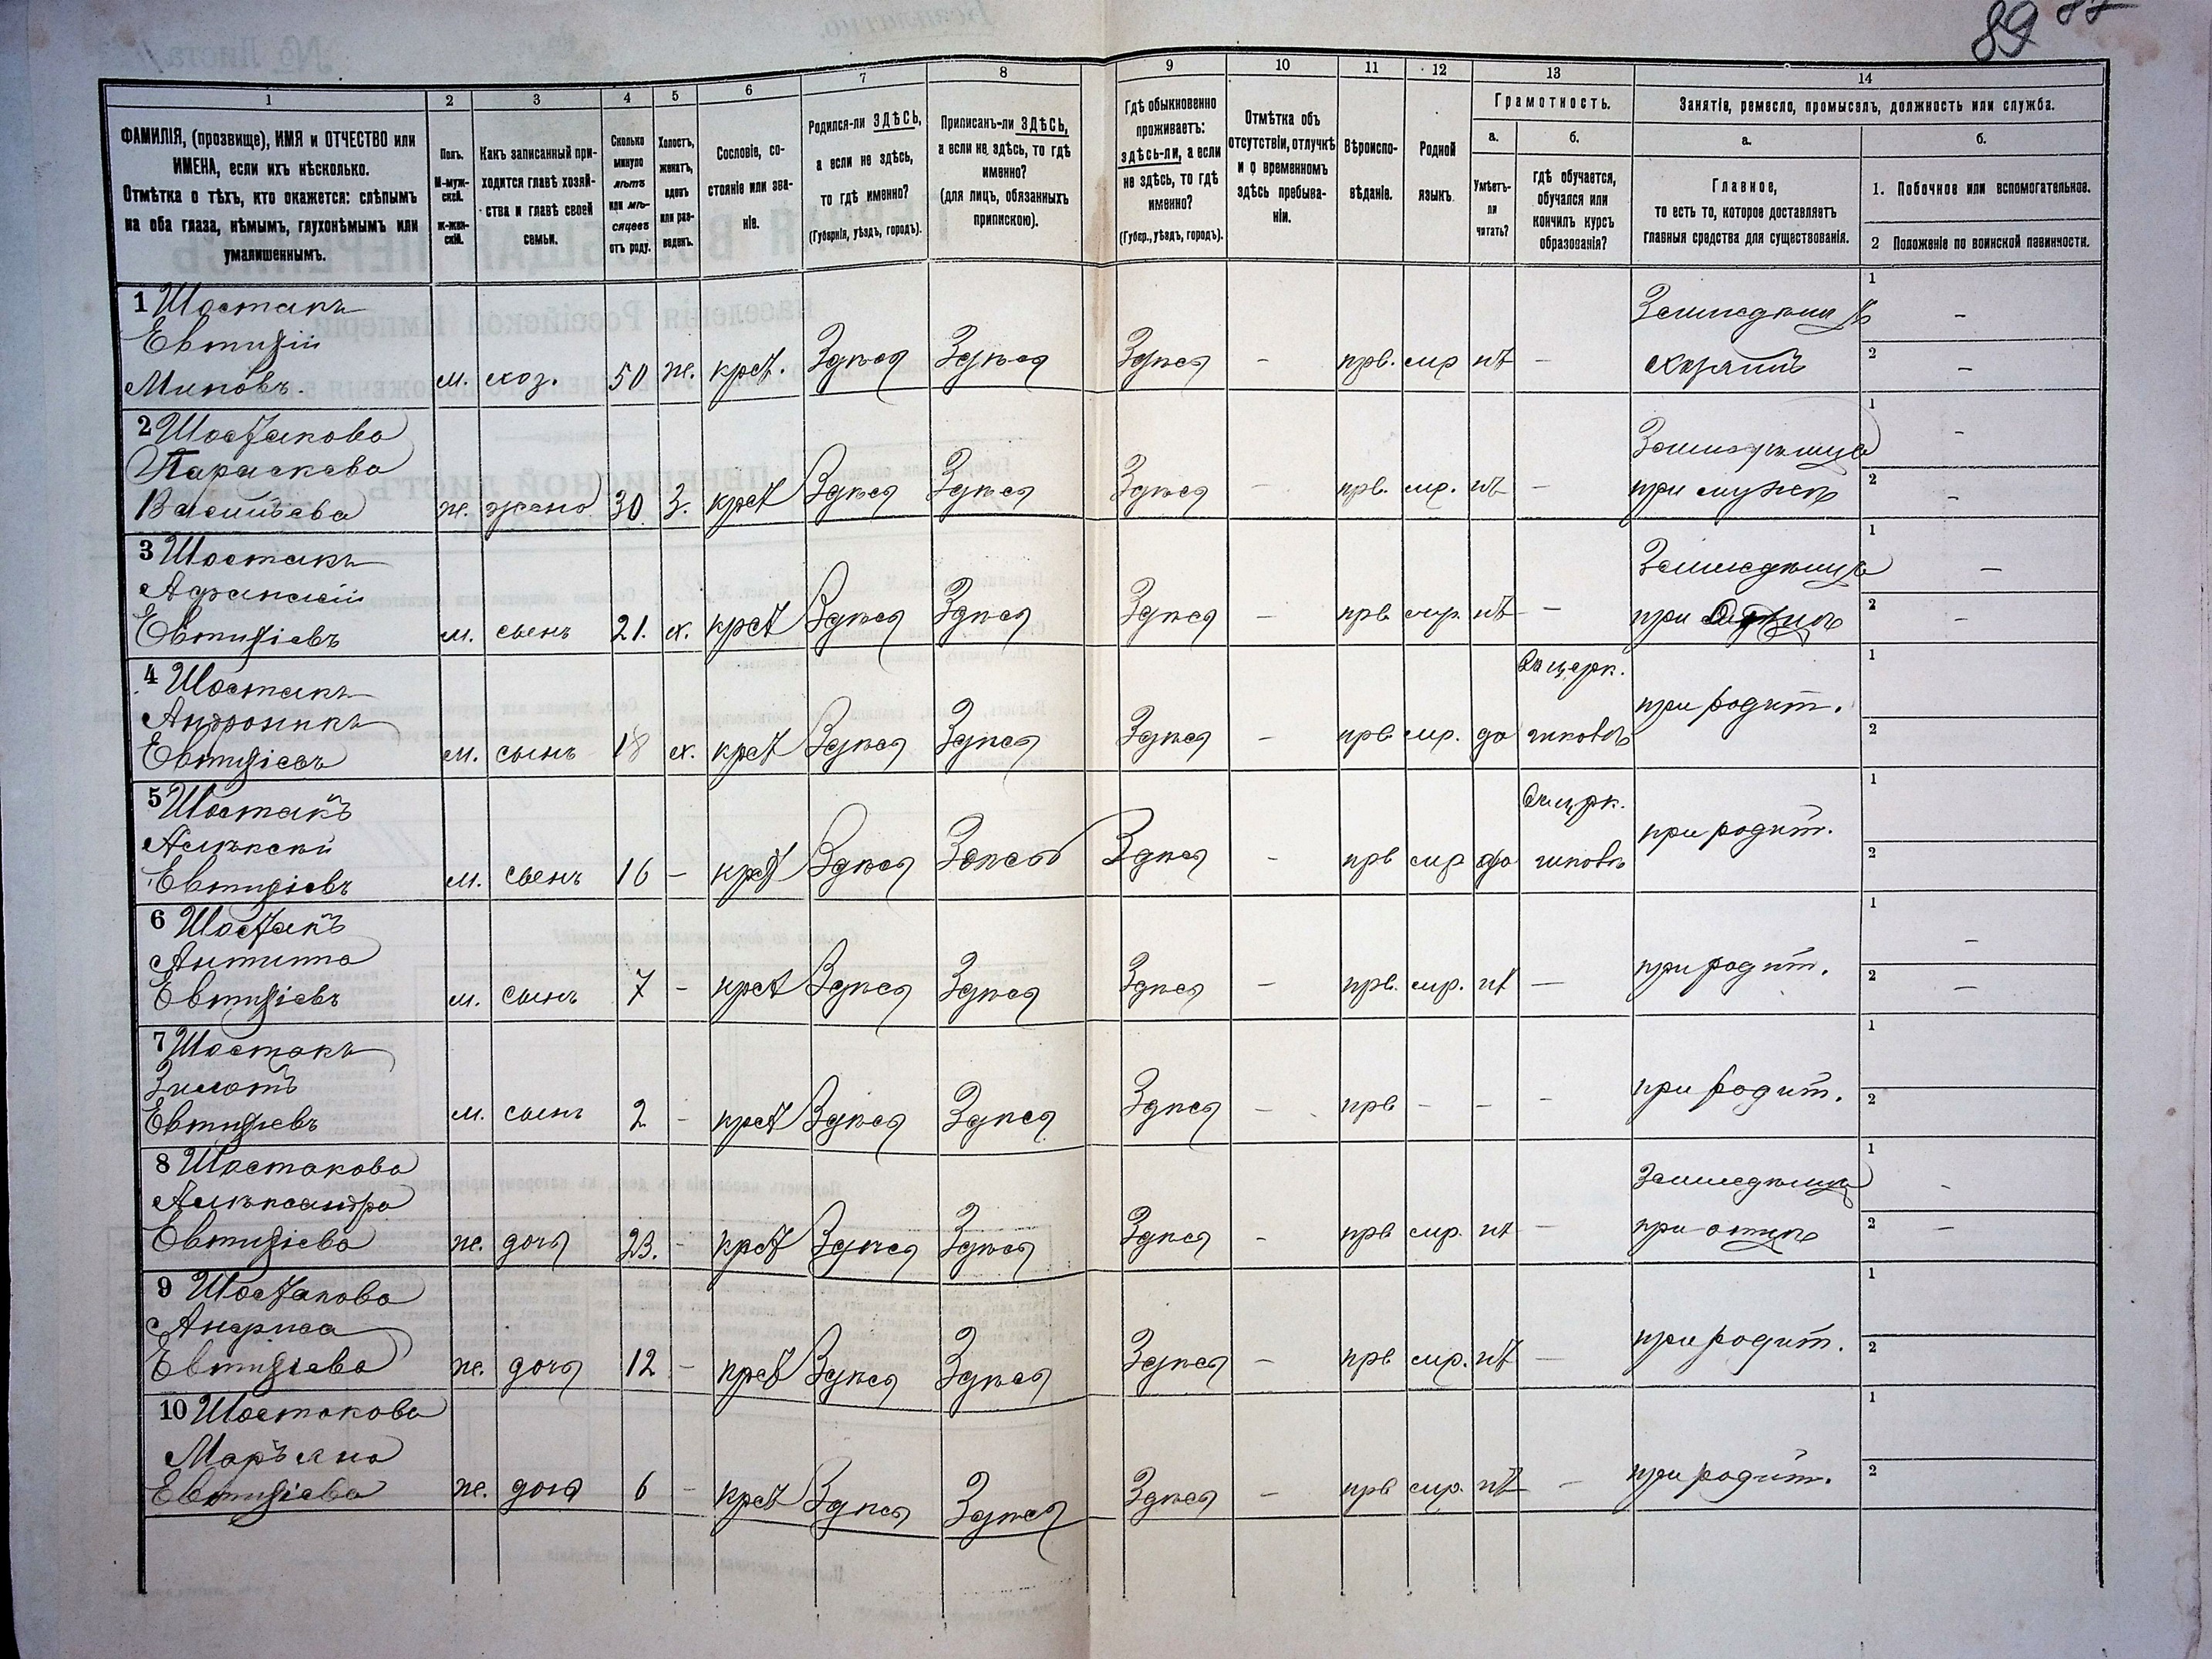 89
1 2 3 4 5 6 7 8 9 10 11 12 13 14
ФАМИЛІЯ, (прозвище), ИМЯ и ОТЧЕСТВО или
ИМЕНА, если ихъ нѣсколько.
Отмѣтка о тѣхъ, кто окажется: слѣпымъ
на оба глаза, нѣмымъ, глухонѣмымъ или
умалишеннымъ.
Полъ.
М-муж-
ской.
ж-жен-
скій.
Какъ записанный при-
ходится главѣ хозяй-
ства и главѣ своей
семьи.
Сколько
минуло
лѣтъ
или мѣ-
сяцевъ
отъ роду.
Холостъ,
женатъ,
вдовъ
или раз-
веденъ.
Сословіе, со-
стояніе или зва-
ніе.
Родился-ли ЗДѢСЬ,
а если не здѣсь,
то гдѣ именно?
(Губернія, уѣздъ, городъ).
Приписанъ-ли ЗДѢСЬ,
а если не здѣсь, то гдѣ
именно?
(для лицъ, обязанныхъ
припискою).
Гдѣ обыкновенно
проживаетъ:
здѣсь-ли, а если
не здѣсь, то гдѣ
именно?
(Губер., уѣздъ, городъ).
Отмѣтка объ
отсутствіи, отлучкѣ
и о временномъ
здѣсь пребыва-
ніи.
Вѣроиспо-
вѣданіе.
Родной
языкъ.
Грамотность.
а.
Умѣетъ-
ли
читать?
б.
гдѣ обучается,
обучался или
кончилъ курсъ
образованія?
Занятіе, ремесло, промыселъ, должность или служба.
а.
Главное,
то есть то, которое доставляетъ
главныя средства для существованія.
б.
1. Побочное или вспомогательное.
2 Положеніе по воинской повинности.
1 Шостакъ
Евтихій
м. хоз. 50 ж. крст. Здѣсь Здѣсь Здѣсь – прв. мр нѣ –
1 –
2 –
2 Шостакова
Параскева
Васильева
ж. жена 30 З. крст Здѣсь Здѣсь Здѣсь – прв. мр. нѣ –
при мужѣ
1 –
2 –
3 Шостакъ
Афанасій
Евтихіевъ
м. сынъ 21. х. крст Здѣсь Здѣсь Здѣсь – прв мр. нѣ –
при отцѣ
1 –
2 –
4 Шостакъ
Андроникъ
Евтихіевъ
м. сынъ 18 х. крст Здѣсь Здѣсь Здѣсь – прв мр. да
при родит.
1
2
5 Шостакъ
Алѣксѣй
Евтихіевъ
м. сынъ 16 – крст Здѣсь Здѣсь Здѣсь – прв мр да
при родит.
1
2
6 Шостакъ
Антипа
Евтихіевъ
м. сынъ 7 – крст Здѣсь Здѣсь Здѣсь – прв. мр. нѣ –
при родит.
1 –
2 –
7 Шостакъ
Евтихіевъ
м. сынъ 2 – крст Здѣсь Здѣсь Здѣсь – прв – – –
при родит.
1
2
8 Шостакова
Алѣксандра
Евтихіева
ж. дочь 23. – крст Здѣсь Здѣсь Здѣсь – прв мр. нѣ –
при отцѣ
1 –
2 –
9 Шостакова
Евтихіева
ж. дочь 12 – крст Здѣсь Здѣсь Здѣсь – прв мр. нѣ –
при родит.
1
2
10 Шостакова
Маръяна
Евтихіева
ж. дочь 6 – крст Здѣсь Здѣсь Здѣсь – прв мр. нѣ –
при родит.
1
2